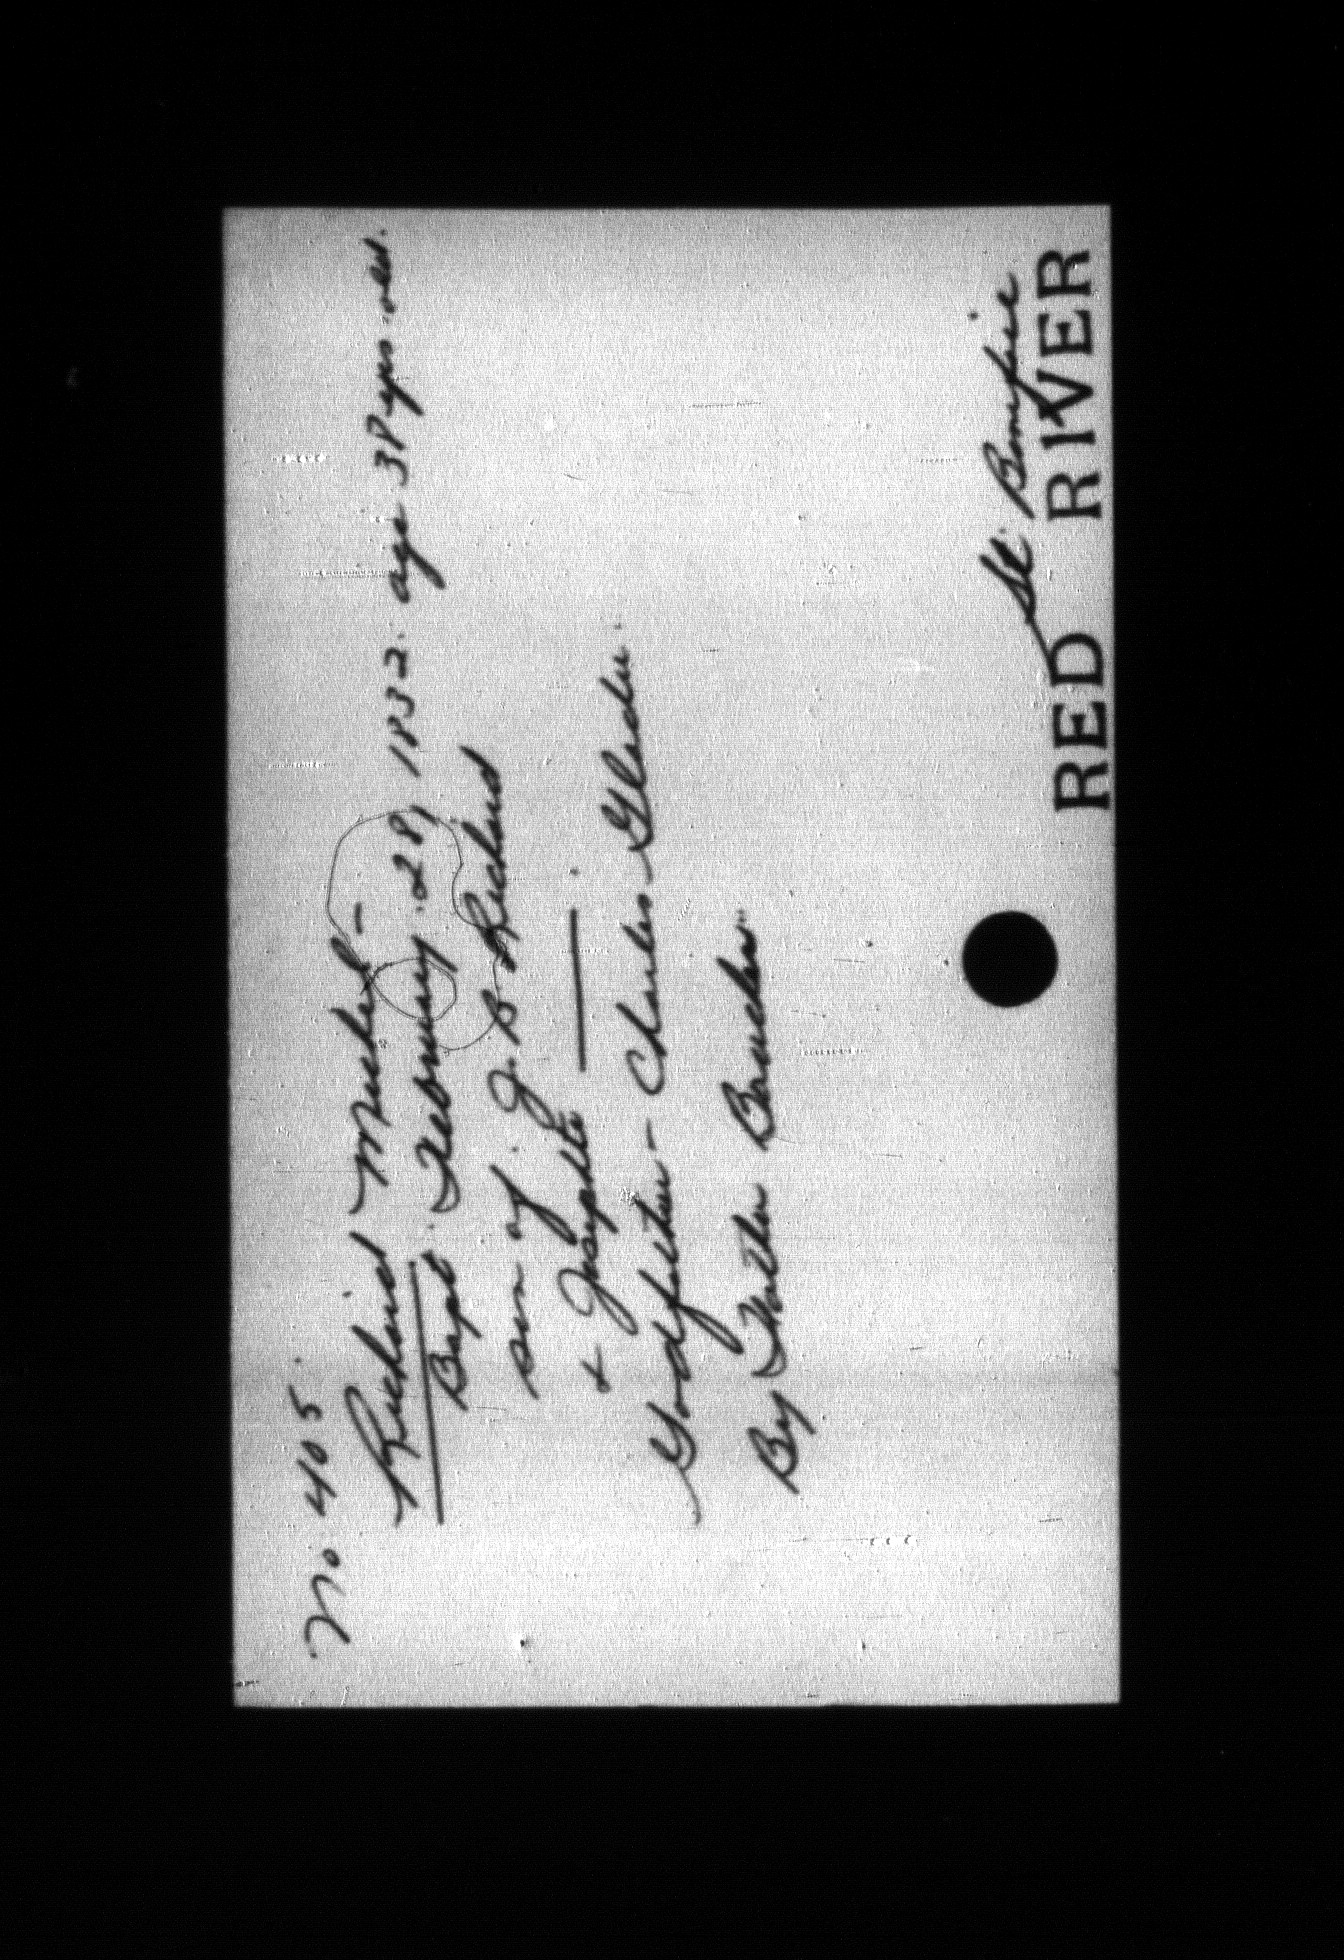 No 405.
Richard Michel –
Bapt. February 28, 1832. age 38 yrs. old.
son of J. B. Richard
& Josephte ———.
Godfather – Charles Gladu.
By Father Boucher
St. Boniface
RED RIVER